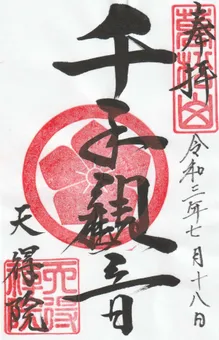 奉拝
令和三年七月十八日
千手観音
天祥院